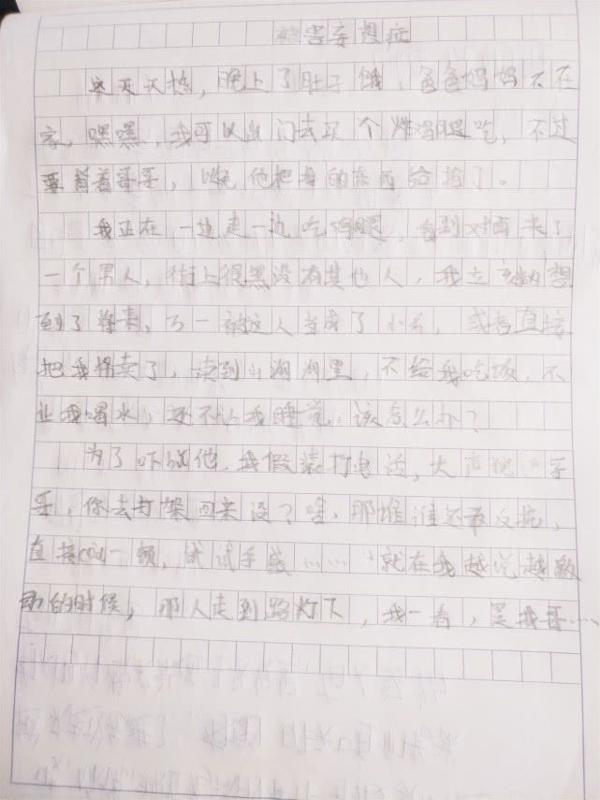 害妄想症
天天热，晚上了肚子饿，爸爸妈妈不在
家，嘿嘿，我可以出门去买个炸鸡腿吃，不过
要背着哥哥，以免他把我的东西给抢了。
我正在一边走一边吃鸡腿，看到对面来了
一个男人，街上很黑没有其他人，我立刻想
到了拐卖，万一被这人当成了小，或者直接
把我拐卖了，卖到山沟沟里，不给我吃饭，不
让我喝水，还不让我睡觉，该怎么办？
为了吓唬他，我假装打电话，大声说：哥
哥，你去打架回来没？啥，那堆谁还敢反抗，
直接cou一顿，试试手感……就在我越说越激
动的时候，那人走到路灯下，我一看，是我哥……